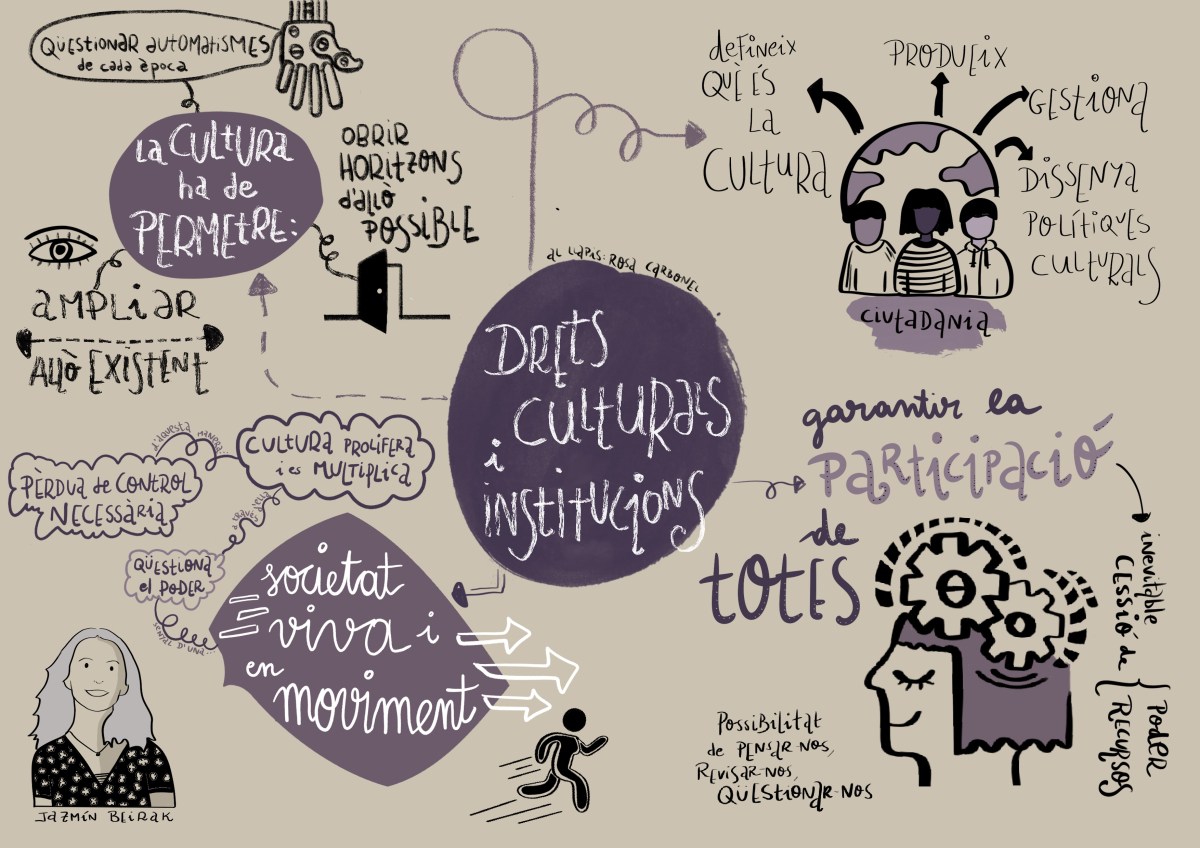 QÜESTIONAR AUTOMATISMES
de cada època
LA CULTURA
ha de
PERMETRE:
OBRIR
HORITZONS
d'allò
POSSIBLE
AMPLIAR
ALLÒ EXISTENT
defineix
QUÈ ÉS
LA
CULTURA
PRODUEIX
GESTIONA
DISSENYA
POLÍTIQUES
CULTURALS
CIUTADANIA
AL LLAPIS: ROSA CARBONEL
DRETS
CULTURALS
i
INSTITUCIONS
garantir la
PARTICIPACIÓ
de
TOTES
inevitable
CESSIÓ de
PODER
RECURSOS
POSSIBILITAT
de PENSAR-NOS,
REVISAR-NOS,
QÜESTIONAR-NOS
CULTURA PROLIFERA
i es MULTIPLICA
d'aquesta manera
PÈRDUA de CONTROL
NECESSÀRIA
a través d'ella
QÜESTIONA
el PODER
SENYAL D'UNA...
societat
viva i
en
moviment
JAZMÍN BEIRAK